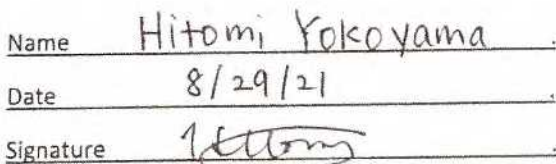 Name Hitomi Yokoyama
Date 8/29/21
Signature